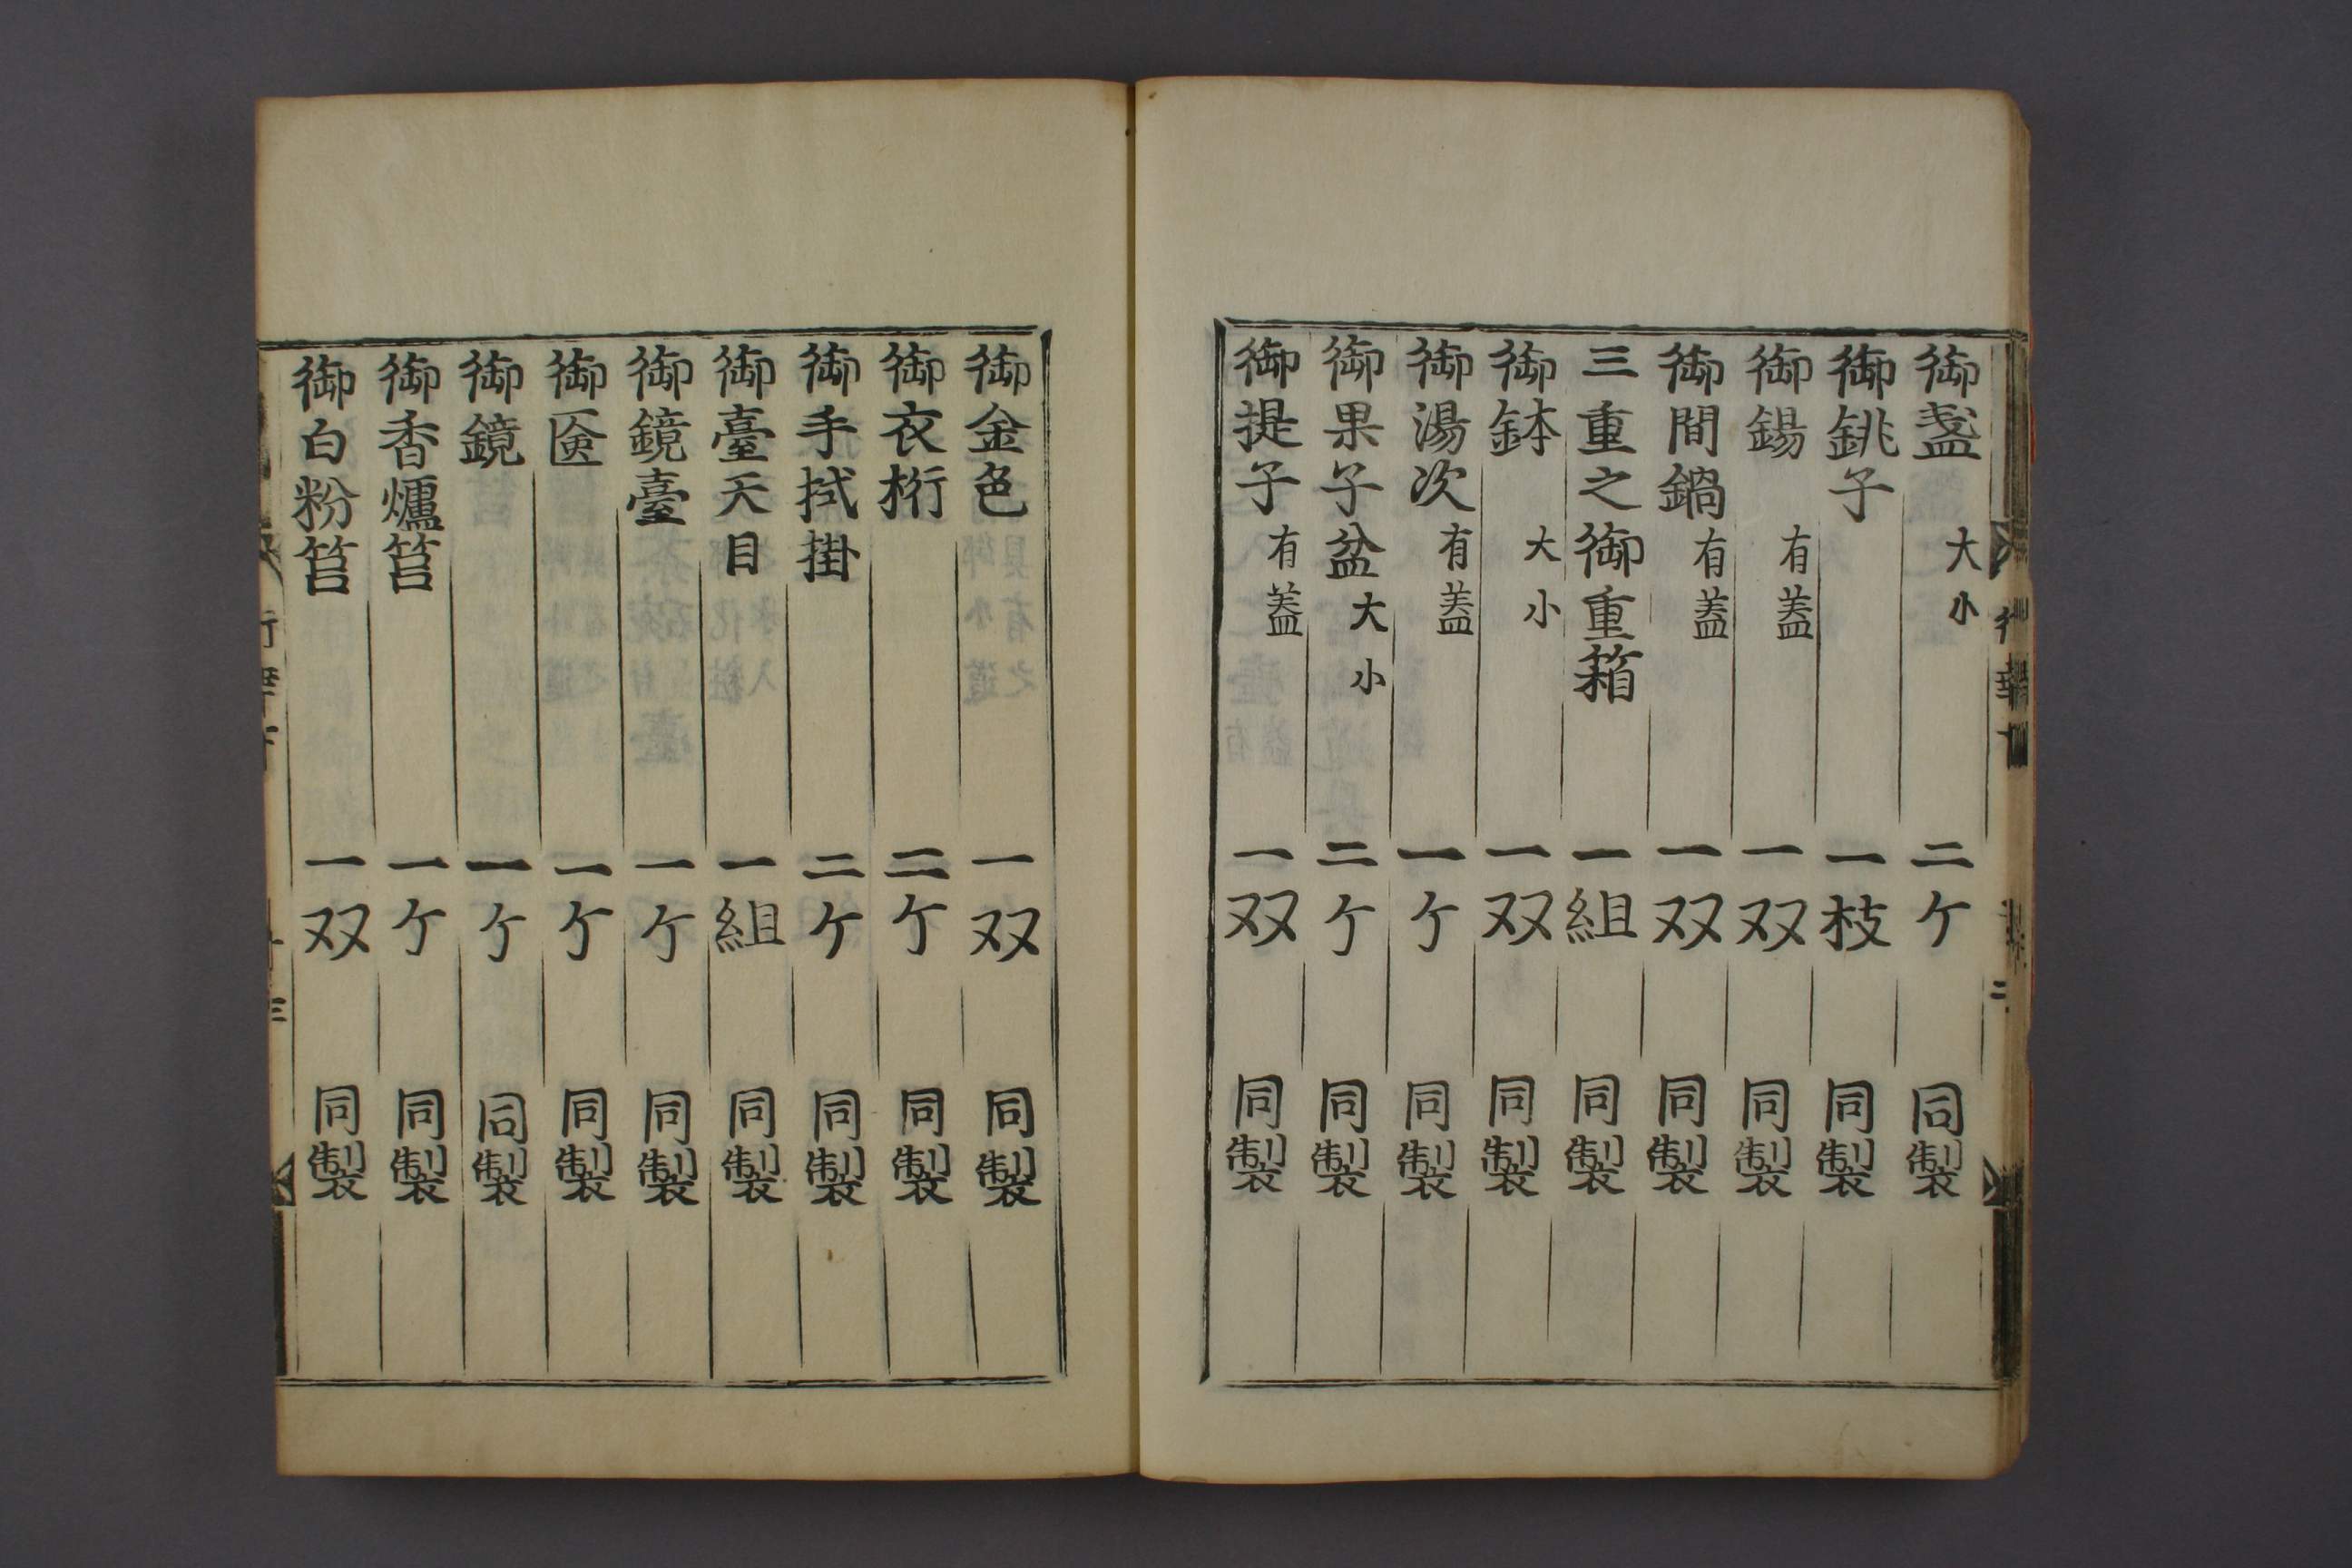 御盞 大小 二ケ 同製
御銚子 一枝 同製
御鍚 有蓋 一双 同製
御間鍋 有蓋 一双 同製
三重之御重箱 一組 同製
御鉢 大小 一双 同製
御湯次 有蓋 一ケ 同製
御果子盆 大小 二ケ 同製
御提子 有蓋 一双 同製
御金色 一双 同製
御衣桁 二ケ 同製
御手拭掛 二ケ 同製
御臺天目 一組 同製
御鏡臺 一ケ 同製
御匳 一ケ 同製
御鏡 一ケ 同製
御香爐筥 一ケ 同製
御白粉筥 一双 同製